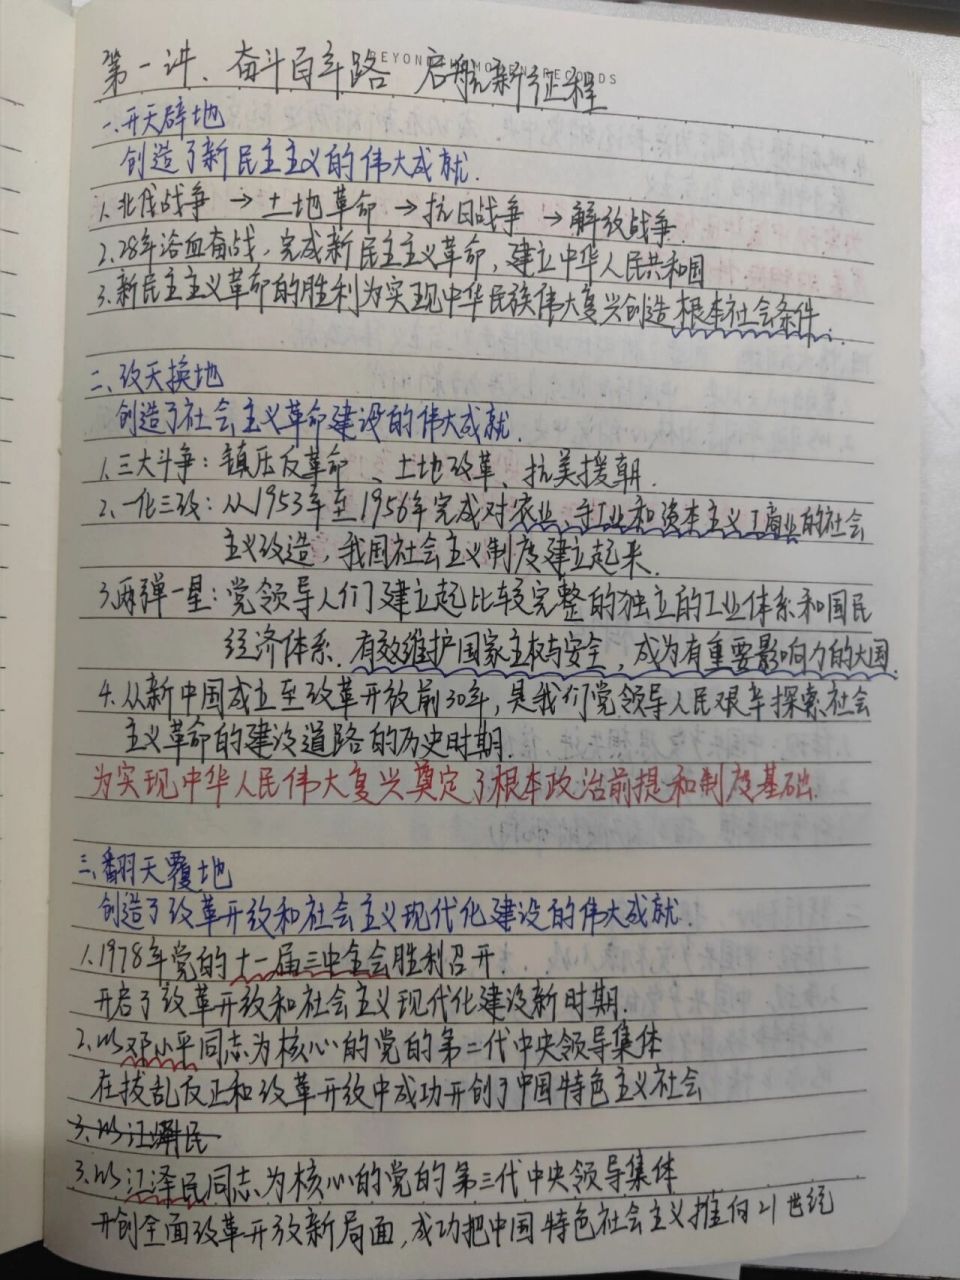 第一讲、奋斗百年路 启航新征程
一.开天辟地
创造了新民主主义的伟大成就.
1.北伐战争→土地革命→抗日战争→解放战争.
2.28年浴血奋战,完成新民主主义革命,建立中华人民共和国
3.新民主主义革命的胜利为实现中华民族伟大复兴创造根本社会条件.
二、改天换地
创造了社会主义革命建设的伟大成就.
1.三大斗争:镇压反革命、土地改革、抗美援朝.
2.一化三改:从1953年至1956年完成对农业、手工业和资本主义工商业的社会
主义改造,我国社会主义制度建立起来.
3.两弹一星:党领导人们建立起比较完整的独立的工业体系和国民
经济体系.有效维护国家主权与安全,成为有重要影响力的大国.
4.从新中国成立至改革开放前30年,是我们党领导人民艰辛探索社会
主义革命的建设道路的历史时期.
为实现中华人民伟大复兴奠定了根本政治前提和制度基础.
三.翻天覆地
创造了改革开放和社会主义现代化建设的伟大成就.
1.1978年党的十一届三中全会胜利召开.
开启了改革开放和社会主义现代化建设新时期.
2.以邓小平同志为核心的党的第二代中央领导集体
在拨乱反正和改革开放中成功开创了中国特色主义社会
3.以江泽民
3.以江泽民同志为核心的党的第三代中央领导集体
开创全面改革开放新局面,成功把中国特色社会主义推向21世纪